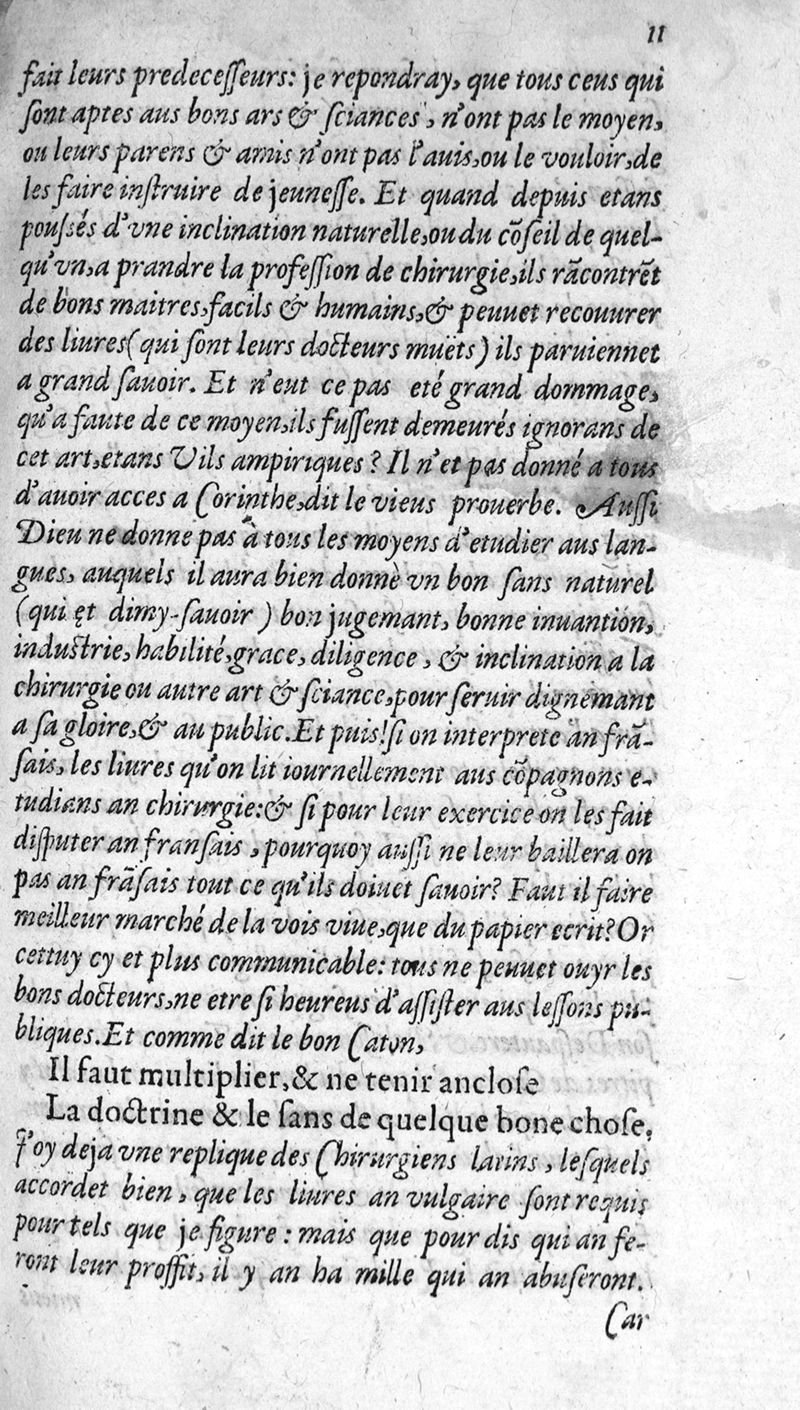 11
fait leurs predecesſeurs: je repondray, que tous ceus qui
ſont aptes aus bons ars & ſciances, n'ont pas le moyen,
ou leurs parens & amis n'ont pas l'auis, ou le vouloir, de
les faire inſtruire de jeuneſſe. Et quand depuis etans
pouſsés d'vne inclination naturelle, ou du cõſeil de quel-
qu'vn, a prandre la profeſſion de chirurgie, ils rãcontrẽt
de bons maitres, facils & humains, & peuuet recouurer
des liures (qui ſont leurs docteurs muëts) ils paruiennet
a grand ſauoir. Et n'eut ce pas eté grand dommage,
qu'a faute de ce moyen, ils fuſſent demeurés ignorans de
cet art, etans Vils ampiriques? Il n'et pas donné a tous
d'auoir acces a Corinthe, dit le vieus prouerbe. Auſſi
Dieu ne donne pas à tous les moyens d'etudier aus lan-
gues, auquels il aura bien donnè vn bon ſans naturel
(qui ęt dimy-ſauoir) bon jugemant, bonne inuantion,
induſtrie, habilité, grace, diligence, & inclination a la
chirurgie ou autre art & ſciance, pour ſeruir dignemant
a ſa gloire, & au public. Et puis! ſi on interprete an frã-
ſais, les liures qu'on lit iournellement aus cõpagnons e-
tudians an chirurgie: & ſi pour leur exercice on les fait
diſputer an franſais, pourquoy auſſi ne leur baillera on
pas an frãſais tout ce qu'ils doiuet ſauoir? Faut il faire
meilleur marché de la vois viue, que du papier ecrit? Or
cettuy cy et plus communicable: tous ne peuuet ouyr les
bons docteurs, ne etre ſi heureus d'aſſiſter aus leſſons pu-
bliques. Et comme dit le bon Caton,
Il faut multiplier, & ne tenir ancloſe
La doctrine & le ſans de quelque bone choſe.
J'oy deja vne replique des Chirurgiens latins, leſquels
accordet bien, que les liures an vulgaire ſont requis
pour tels que je figure: mais que pour dis qui an fe-
ront leur proffit, il y an ha mille qui an abuſeront.
Car